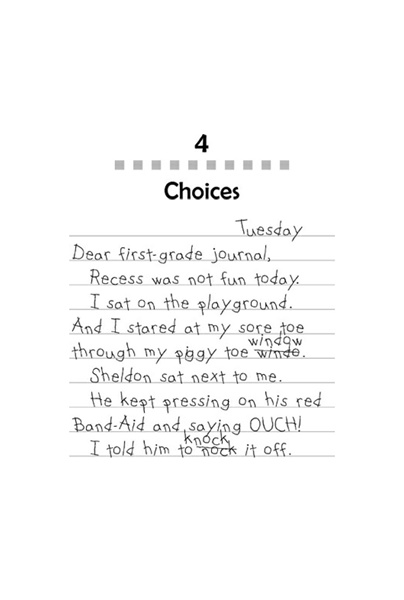 4
Choices
Tuesday
Dear first-grade journal,
Recess was not fun today.
I sat on the playground.
And I stared at my sore toe
window
through my piggy toe windo.
Sheldon sat next to me.
He kept pressing on his red
Band-Aid and saying OUCH!
knock
I told him to nock it off.